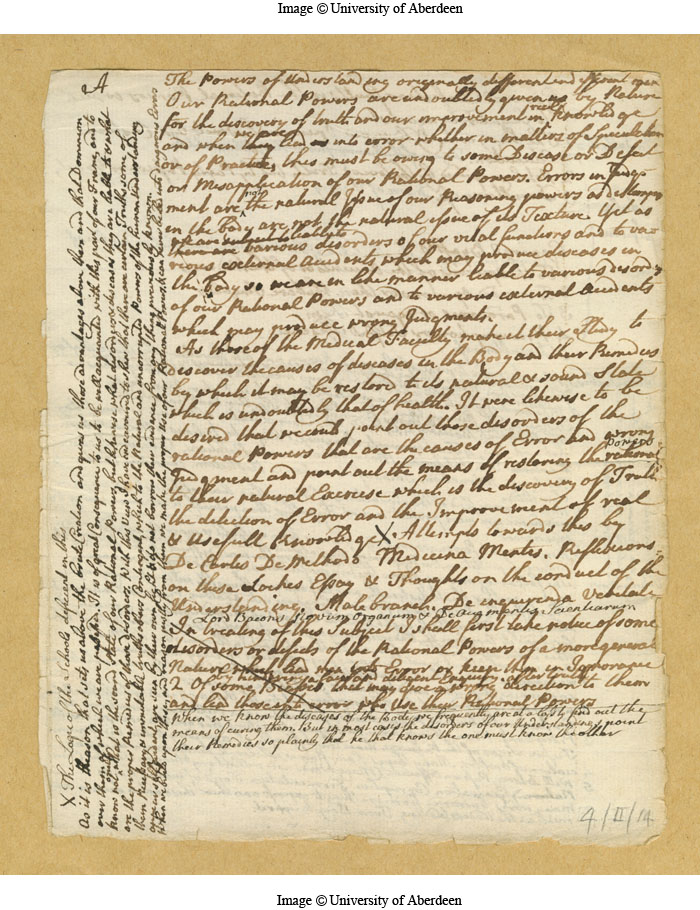 Image © University of Aberdeen
A
The Powers of Understanding originally different in different men
Our Rational Powers are undoubtedly given us by Nature
for the discovery of truth and our improvement in real Knowledge
and when we are led into error whether in matters of Speculation
or of Practice, this must be owing to some Disease or Defect
or Misapplication of our Rational Powers. Errors in Judg
ment are not the natural Issue of our Reasoning powers as distempers
in the Body are not the natural issue of its Texture. Yet as
we are subject to
there are various disorders of our vital functions and to va-
rious external accidents which may produce diseases in
the Body so we are in like manner liable to various disorders
of our Rational Powers and to various external Accidents
which may produce wrong Judgments.
As those of the Medical Faculty make it their Study to
discover the causes of diseases in the Body and their Remedies
by which it may be restored to its natural & sound State
which is undoubtedly that of health. It were likewise to be
desired that we could point out those disorders of the
rational Powers that are the causes of Error and wrong
Judgment and point out the means of restoring the rational powers
to their natural Exercise which is the discovery of Truth
the detection of Error and the Improvement of real
& usefull Knowledge X. Attempts towards this by
De Cartes De Methodo Medicina Mentis. Reflexions
on these Lockes Essay & Thoughts on the conduct of the
Understanding. Malebranch. De inquirenda Veritate
Lord Bacons Novum Organum & De Augmentis Scientiarum
In treating of this Subject I shall first take notice of some
disorders or defects of the Rational Powers of a more general
Nature which lead men into Error or keep them in Ignorance
or hinder a fair and diligent Enquiry after truth
2 Of some that may give a wrong direction to them
and lead those into error who use their Rational Powers
When we know the diseases of the Body we frequently are at a loss to find out the
means of curing them. But in most cases the disorders of our Understandings point
their Remedies so plainly that he that knows the one must know the other
4/II/14
X The Logic of the Schools deficient in this
As it is Reason that sets us above the brute Creation and gives us those advantages above them and that Dominion
over them of which we are possest. It is of great consequence to us to be well acquainted with this part of our Frame, and to
know not only what is the sound state of our Rational Powers, but likewise what disorders or diseases they are liable to & what
are the proper Remedies of these disorders. With this View I have endeavoured to show that there are certain Truths some of
Image © University of Aberdeen